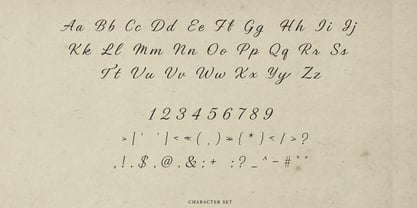 Aa Bb Cc Dd Ee Ff Gg Hh Ii Jj
Kk Ll Mm Nn Oo Pp Qq Rr Ss
Tt Uu Vv Ww Xx Yy Zz
1 2 3 4 5 6 7 8 9
( , ) { * } < / > ?
. ! . $ . @ . & : + : ? _ ^ - #
CHARACTER SET